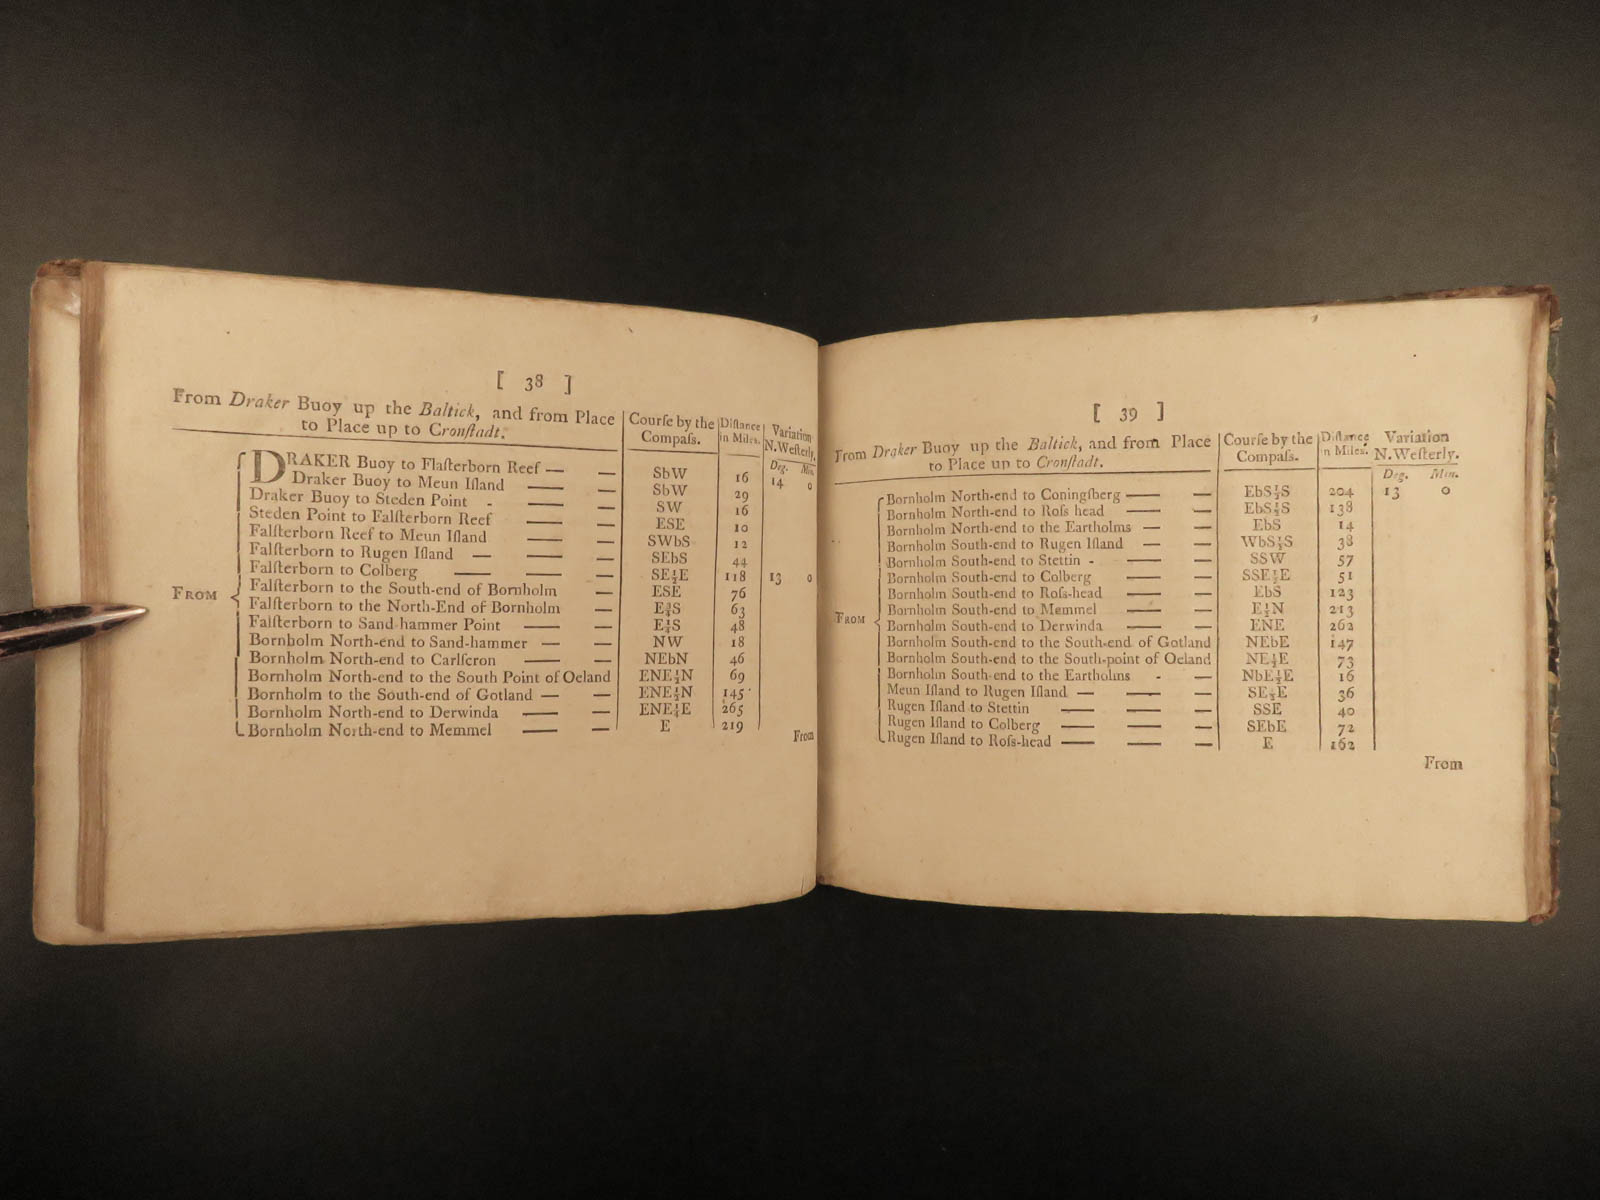 [ 38 ]
From Draker Buoy up the Baltick, and from Place to Place up to Cronſtadt. | Courſe by the Compaſs. | Diſtance in Miles. | Variation N.Weſterly.
Deg. Min.
FROM
DRAKER Buoy to Flaſterborn Reef — — SbW 16 14 0
Draker Buoy to Meun Iſland — — SbW 29
Draker Buoy to Steden Point - — SW 16
Steden Point to Falſterborn Reef — — ESE 10
Falſterborn Reef to Meun Iſland — — SWbS 12
Falſterborn to Rugen Iſland — — — SEbS 44
Falſterborn to Colberg — — — SE½E 118 13 0
Falſterborn to the South-end of Bornholm — ESE 76
Falſterborn to the North-End of Bornholm — E¾S 63
Falſterborn to Sand hammer Point — — E¼S 48
Bornholm North-end to Sand-hammer — — NW 18
Bornholm North-end to Carlſcron — — NEbN 46
Bornholm North-end to the South Point of Oeland ENE½N 69
Bornholm to the South-end of Gotland — — ENE½N 145
Bornholm North-end to Derwinda — — ENE¼E 265
Bornholm North-end to Memmel — — E 219
From
[ 39 ]
From Draker Buoy up the Baltick, and from Place to Place up to Cronſtadt. | Courſe by the Compaſs. | Diſtance in Miles. | Variation N.Weſterly.
Deg. Min.
FROM
Bornholm North-end to Coningſberg — — EbS½S 204 13 0
Bornholm North-end to Roſs head — — EbS½S 138
Bornholm North-end to the Eartholms — — EbS 14
Bornholm South-end to Rugen Iſland — — WbS½S 38
Bornholm South-end to Stettin - — — SSW 57
Bornholm South-end to Colberg — — SSE½E 51
Bornholm South-end to Roſs-head — — EbS 123
Bornholm South-end to Memmel — — E½N 213
Bornholm South-end to Derwinda — — ENE 262
Bornholm South-end to the South-end of Gotland NEbE 147
Bornholm South-end to the South-point of Oeland NE½E 73
Bornholm South-end to the Eartholms - — NbE½E 16
Meun Iſland to Rugen Iſland — — — SE½E 36
Rugen Iſland to Stettin — — — SSE 40
Rugen Iſland to Colberg — — — SEbE 72
Rugen Iſland to Roſs-head — — — E 162
From